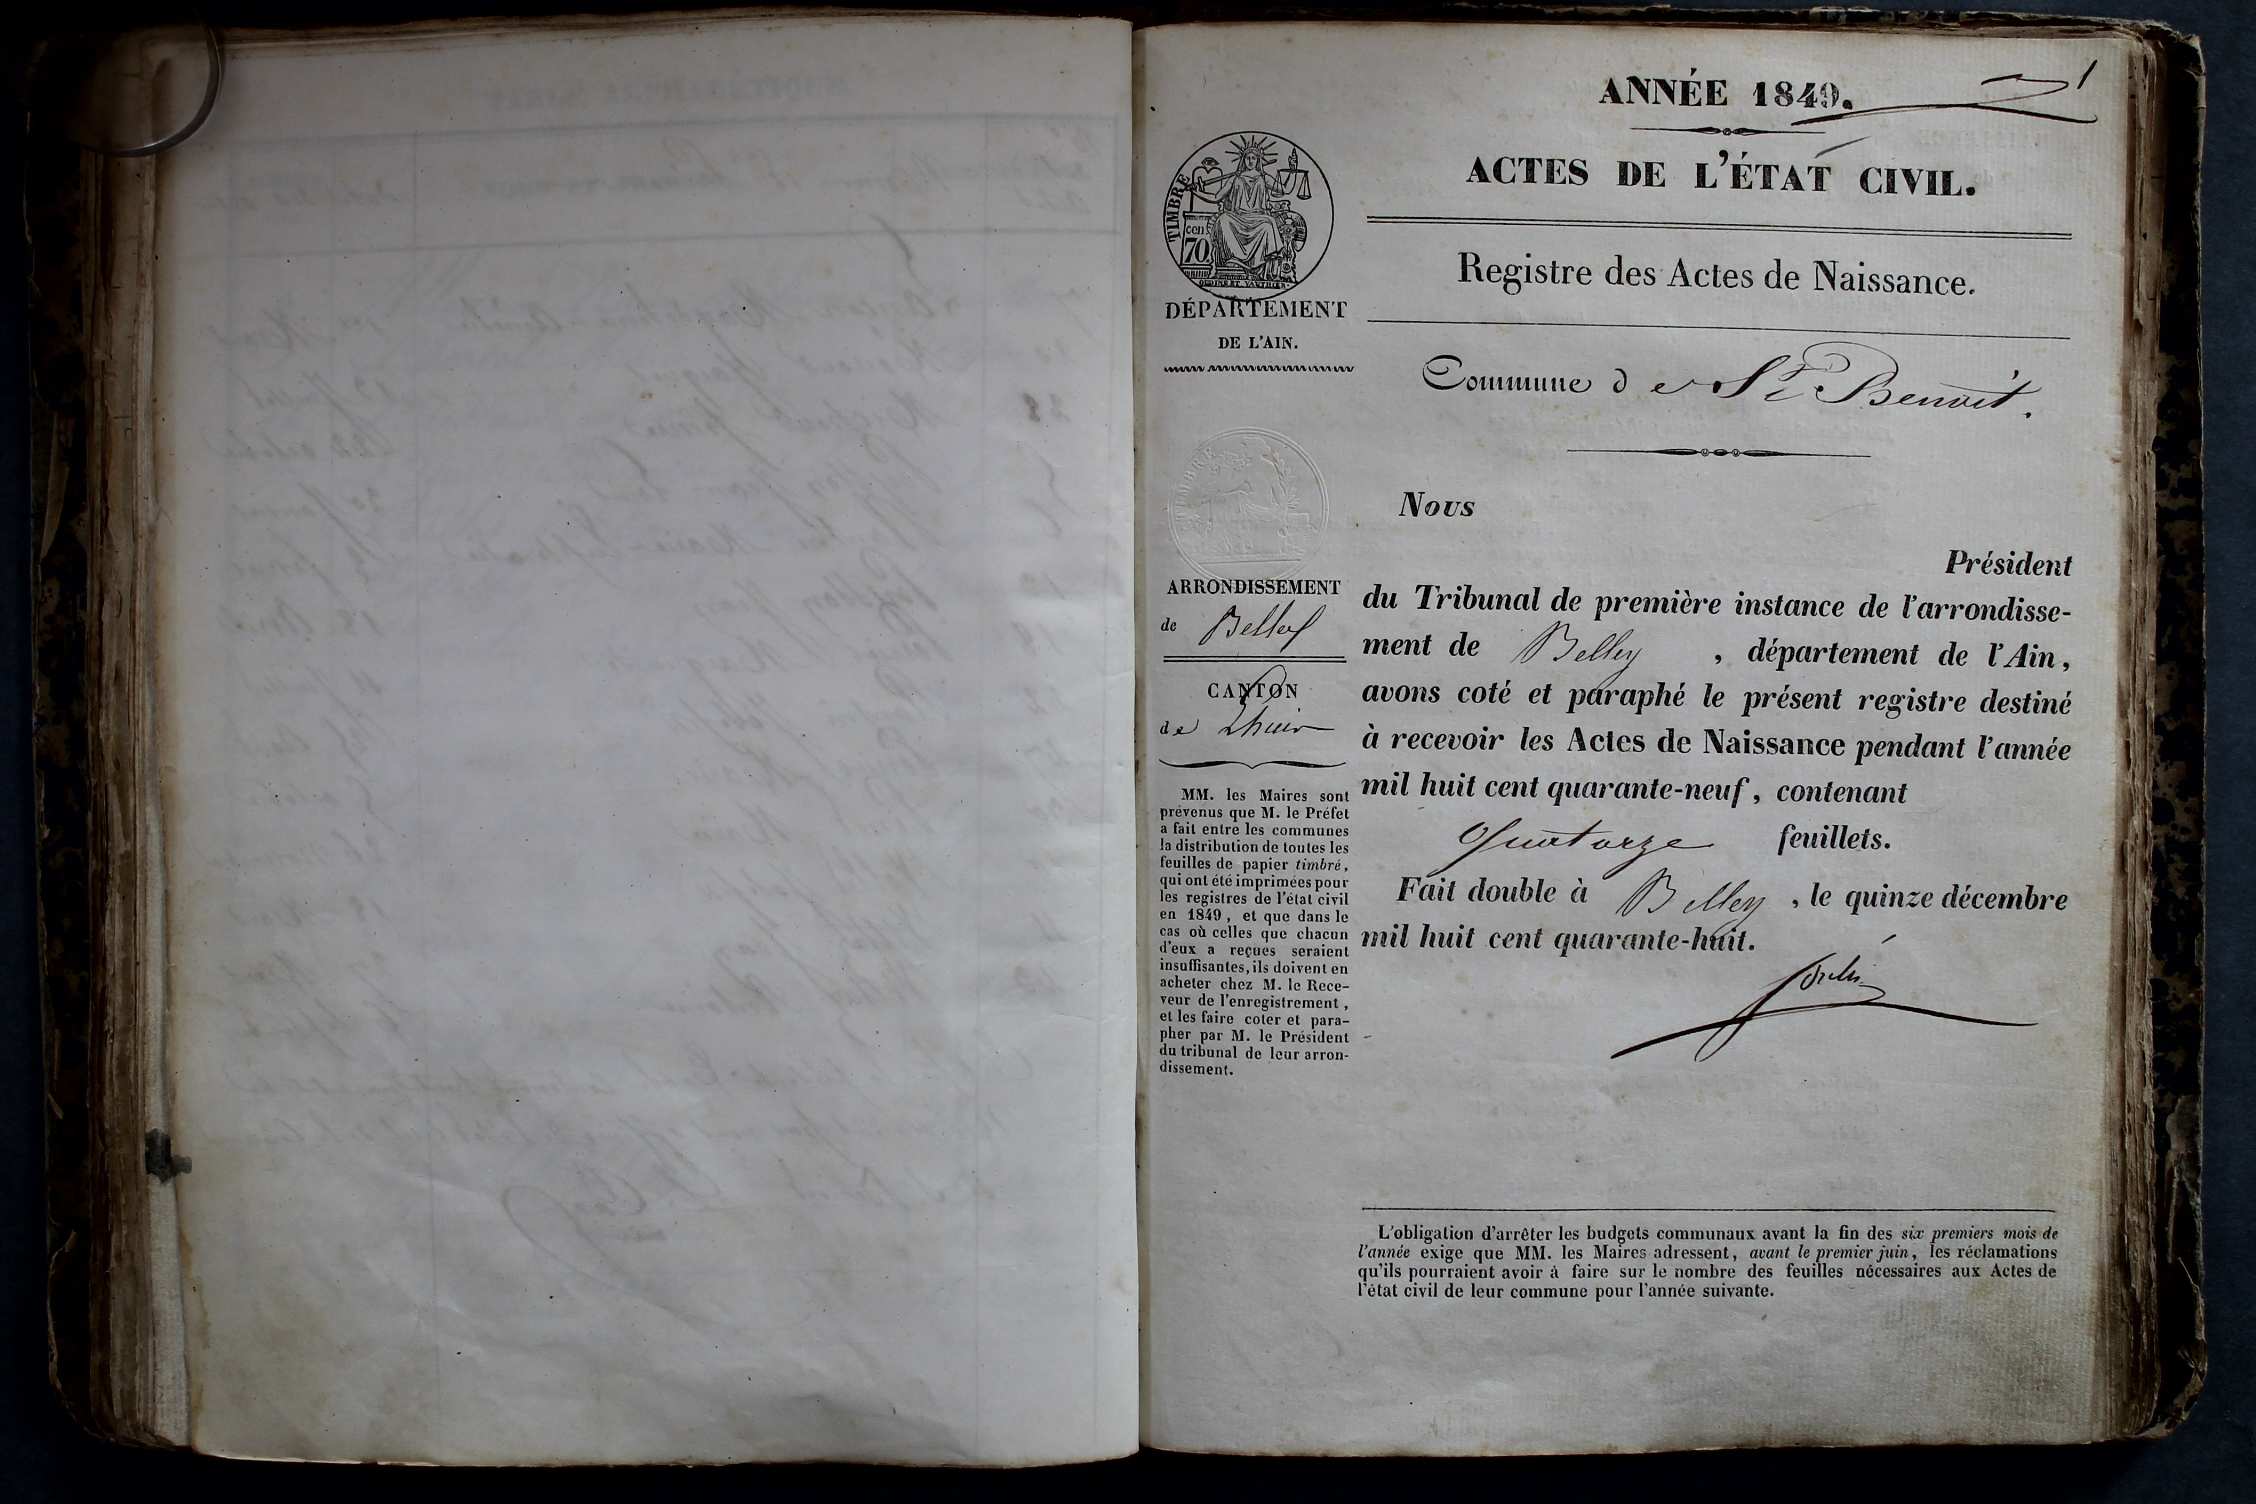 1
ANNÉE 1849.
ACTES DE L'ÉTAT CIVIL.
Registre des Actes de Naissance.
Commune de St Benoit.
TIMBRE
cen
70
DÉPARTEMENT
DE L'AIN.
TIMBRE
ARRONDISSEMENT
de Belley
CANTON
de Lhuis
MM. les Maires sont
prévenus que M. le Préfet
a fait entre les communes
la distribution de toutes les
feuilles de papier timbré,
qui ont été imprimées pour
les registres de l'état civil
en 1849, et que dans le
cas où celles que chacun
d'eux a reçues seraient
insuffisantes, ils doivent en
acheter chez M. le Rece-
veur de l'enregistrement,
et les faire coter et para-
pher par M. le Président
du tribunal de leur arron-
dissement.
Nous
Président
du Tribunal de première instance de l'arrondisse-
ment de Belley, département de l'Ain,
avons coté et paraphé le présent registre destiné
à recevoir les Actes de Naissance pendant l'année
mil huit cent quarante-neuf, contenant
Quatorze feuillets.
Fait double à Belley, le quinze décembre
mil huit cent quarante-huit.
L'obligation d'arrêter les budgets communaux avant la fin des six premiers mois de
l'année exige que MM. les Maires adressent, avant le premier juin, les réclamations
qu'ils pourraient avoir à faire sur le nombre des feuilles nécessaires aux Actes de
l'état civil de leur commune pour l'année suivante.